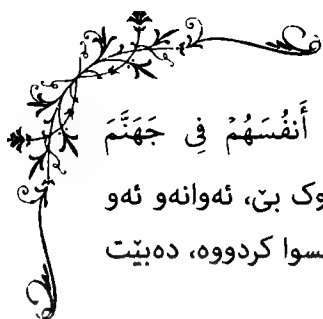 أَنفُسَهُمْ فِى جَهَنَّمَ
وک بێ، ئەوانەو ئەو
سوا کردووە، دەبێت